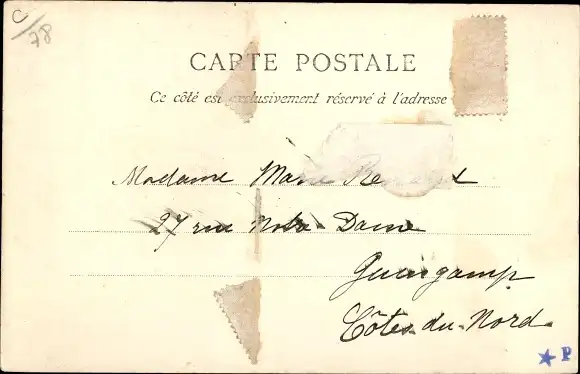 C/78
CARTE POSTALE
Ce côté est exclusivement réservé à l'adresse
Madame Marie
27 rue Notre Dame
Guingamp
Côtes-du-Nord.
P